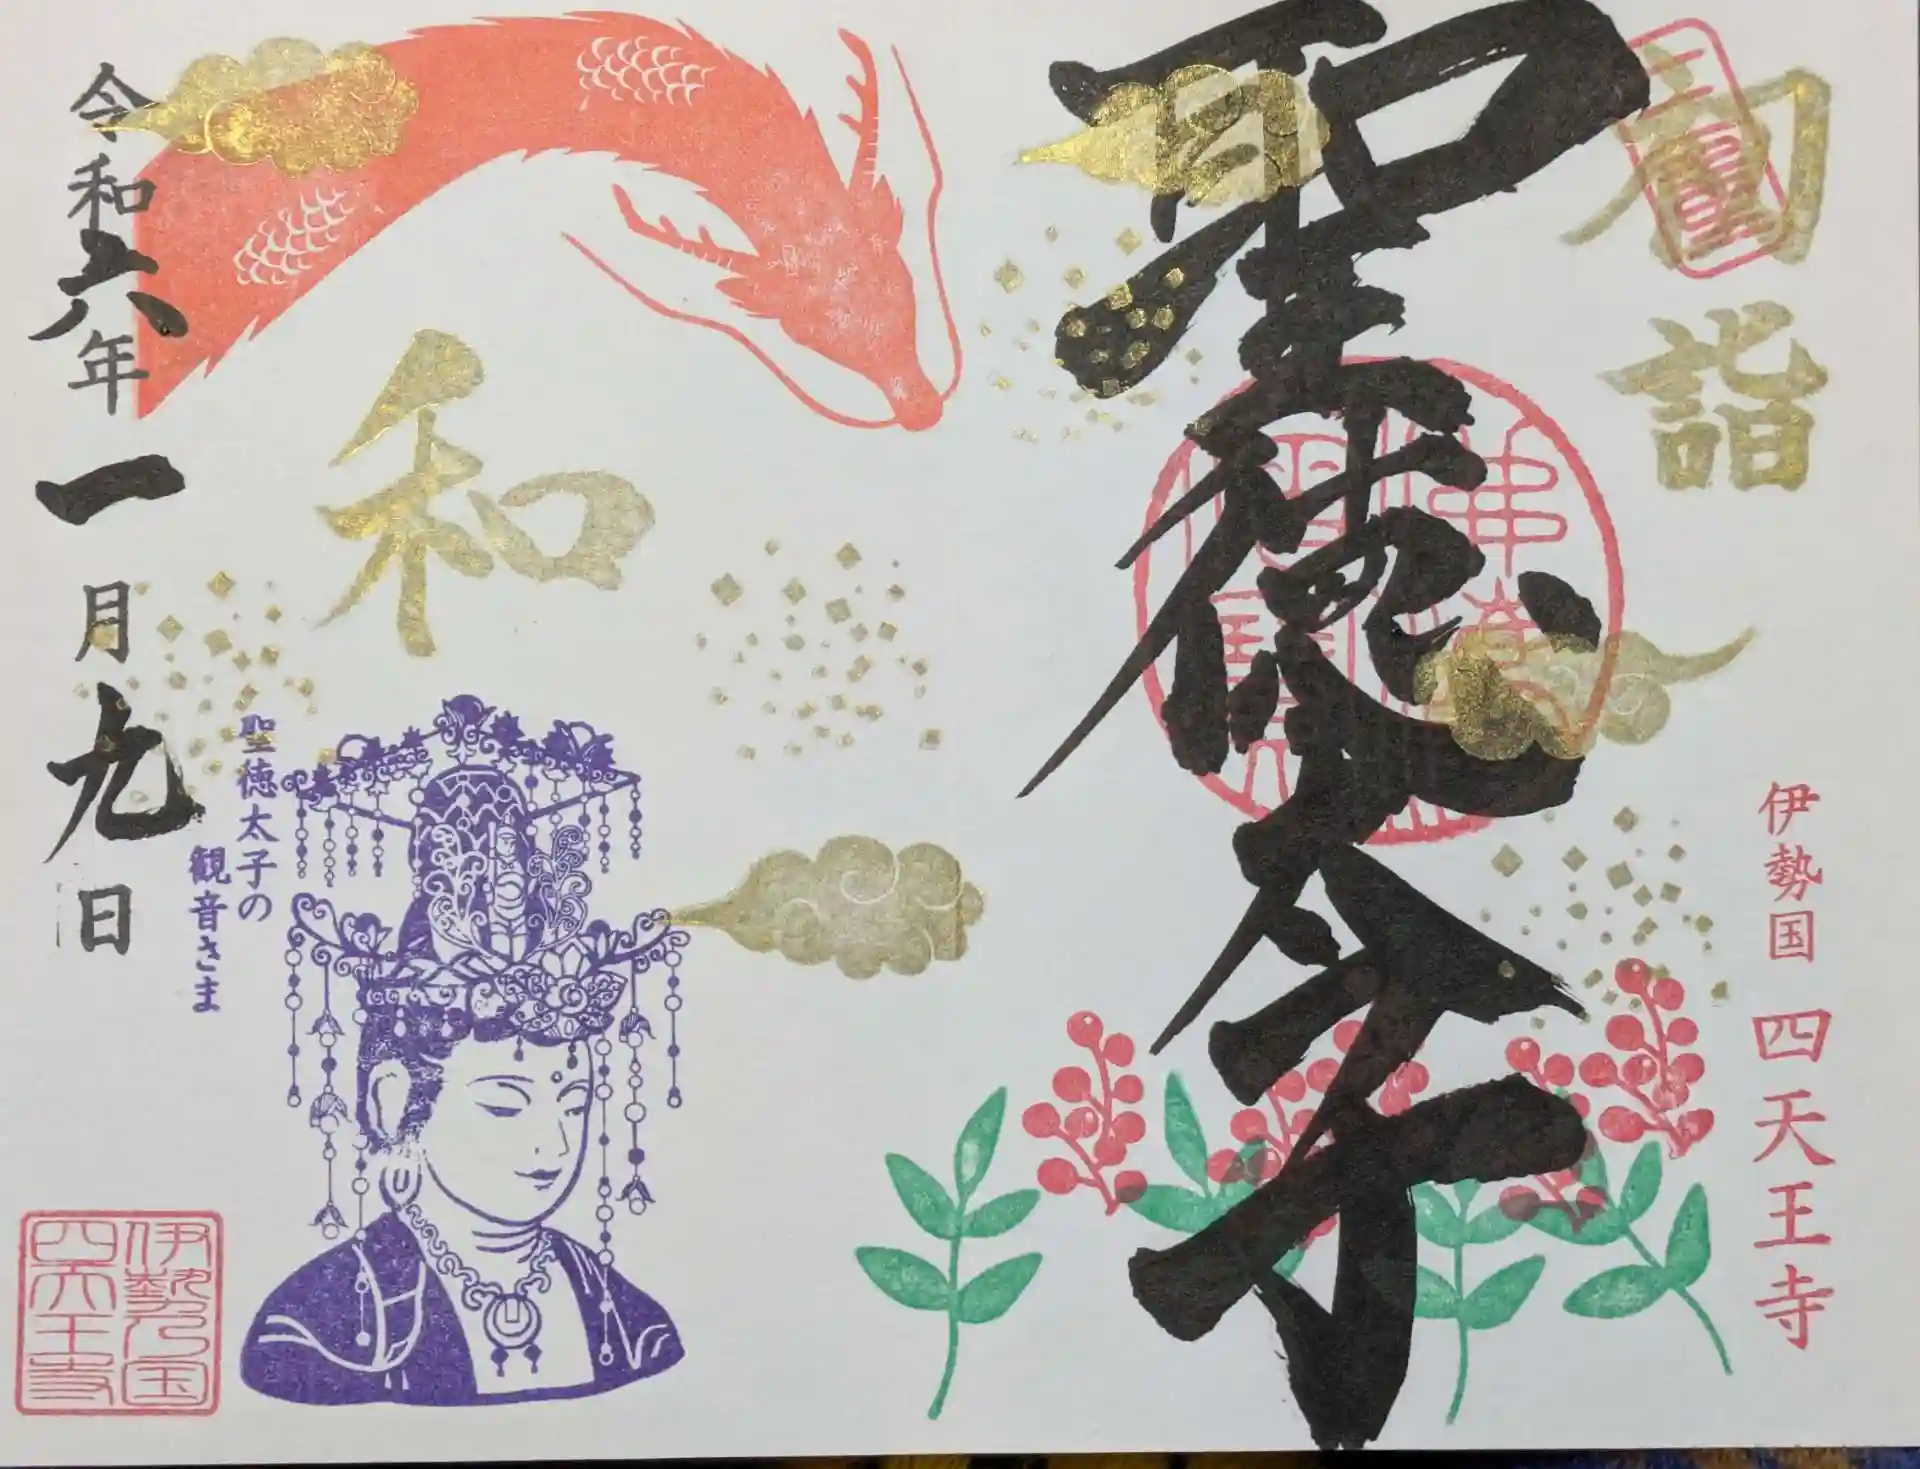 初詣
聖徳太子
伊勢国 四天王寺
和
聖徳太子の
観音さま
令和六年一月九日
伊勢乃国
四天王寺